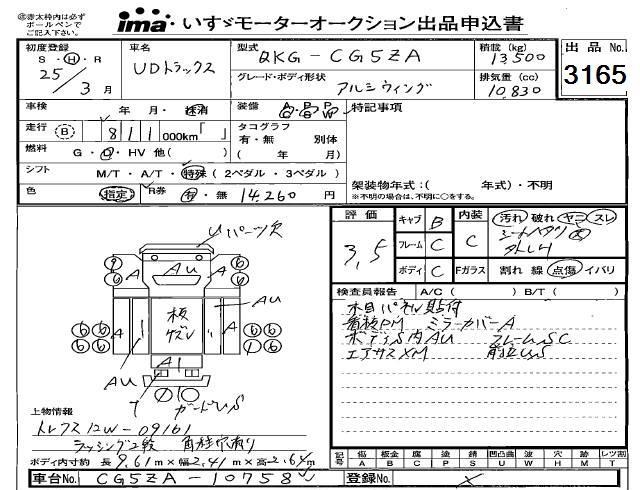 ㊟赤太枠内は必ず
ボールペンで
ご記入下さい。
ima いすゞモーターオークション出品申込書
初度登録
S・H・R
25/3月
車名
UDトラックス
型式
QKG-CG5ZA
グレード・ボディ形状
アルミウィング
積載(kg)
13500
排気量(cc)
10,830
出品No.
3165
車検 年 月・抹消
装備 A/C P/S P/W
特記事項
走行 (B) 811 000km「 」
タコグラフ
有・無 別体
( 年 月)
燃料 G・D・HV 他( )
シフト M/T・A/T・特殊(2ペダル・3ペダル)
架装物年式:( 年式)・不明
※不明の場合は、不明に○をする。
色 指定 R券 有・無 14,260 円
評価 3,5
キャブ B
フレーム C
ボディ C
内装 C
Fガラス
汚れ 破れ ヤニ スレ
割れ 線 点傷 イバリ
検査員報告 A/C( ) B/T( )
木目パネル貼付
看板PM ミラーカバーA
ボディS内AU フレームSC
エアサスXM
Uパーツ欠
AU
A
板
AU
A1
AU
上物情報
トレクス12W-09161
ラッシング2段 角柱穴有り
ボディ内寸約 長9.61m×幅2.41m×高2.64m
車台No. CG5ZA-10758
登録No.
記号 傷A 板金B 腐C 塗P 錆S 凹凸曲U 波W 穴H 汚M レツ割T